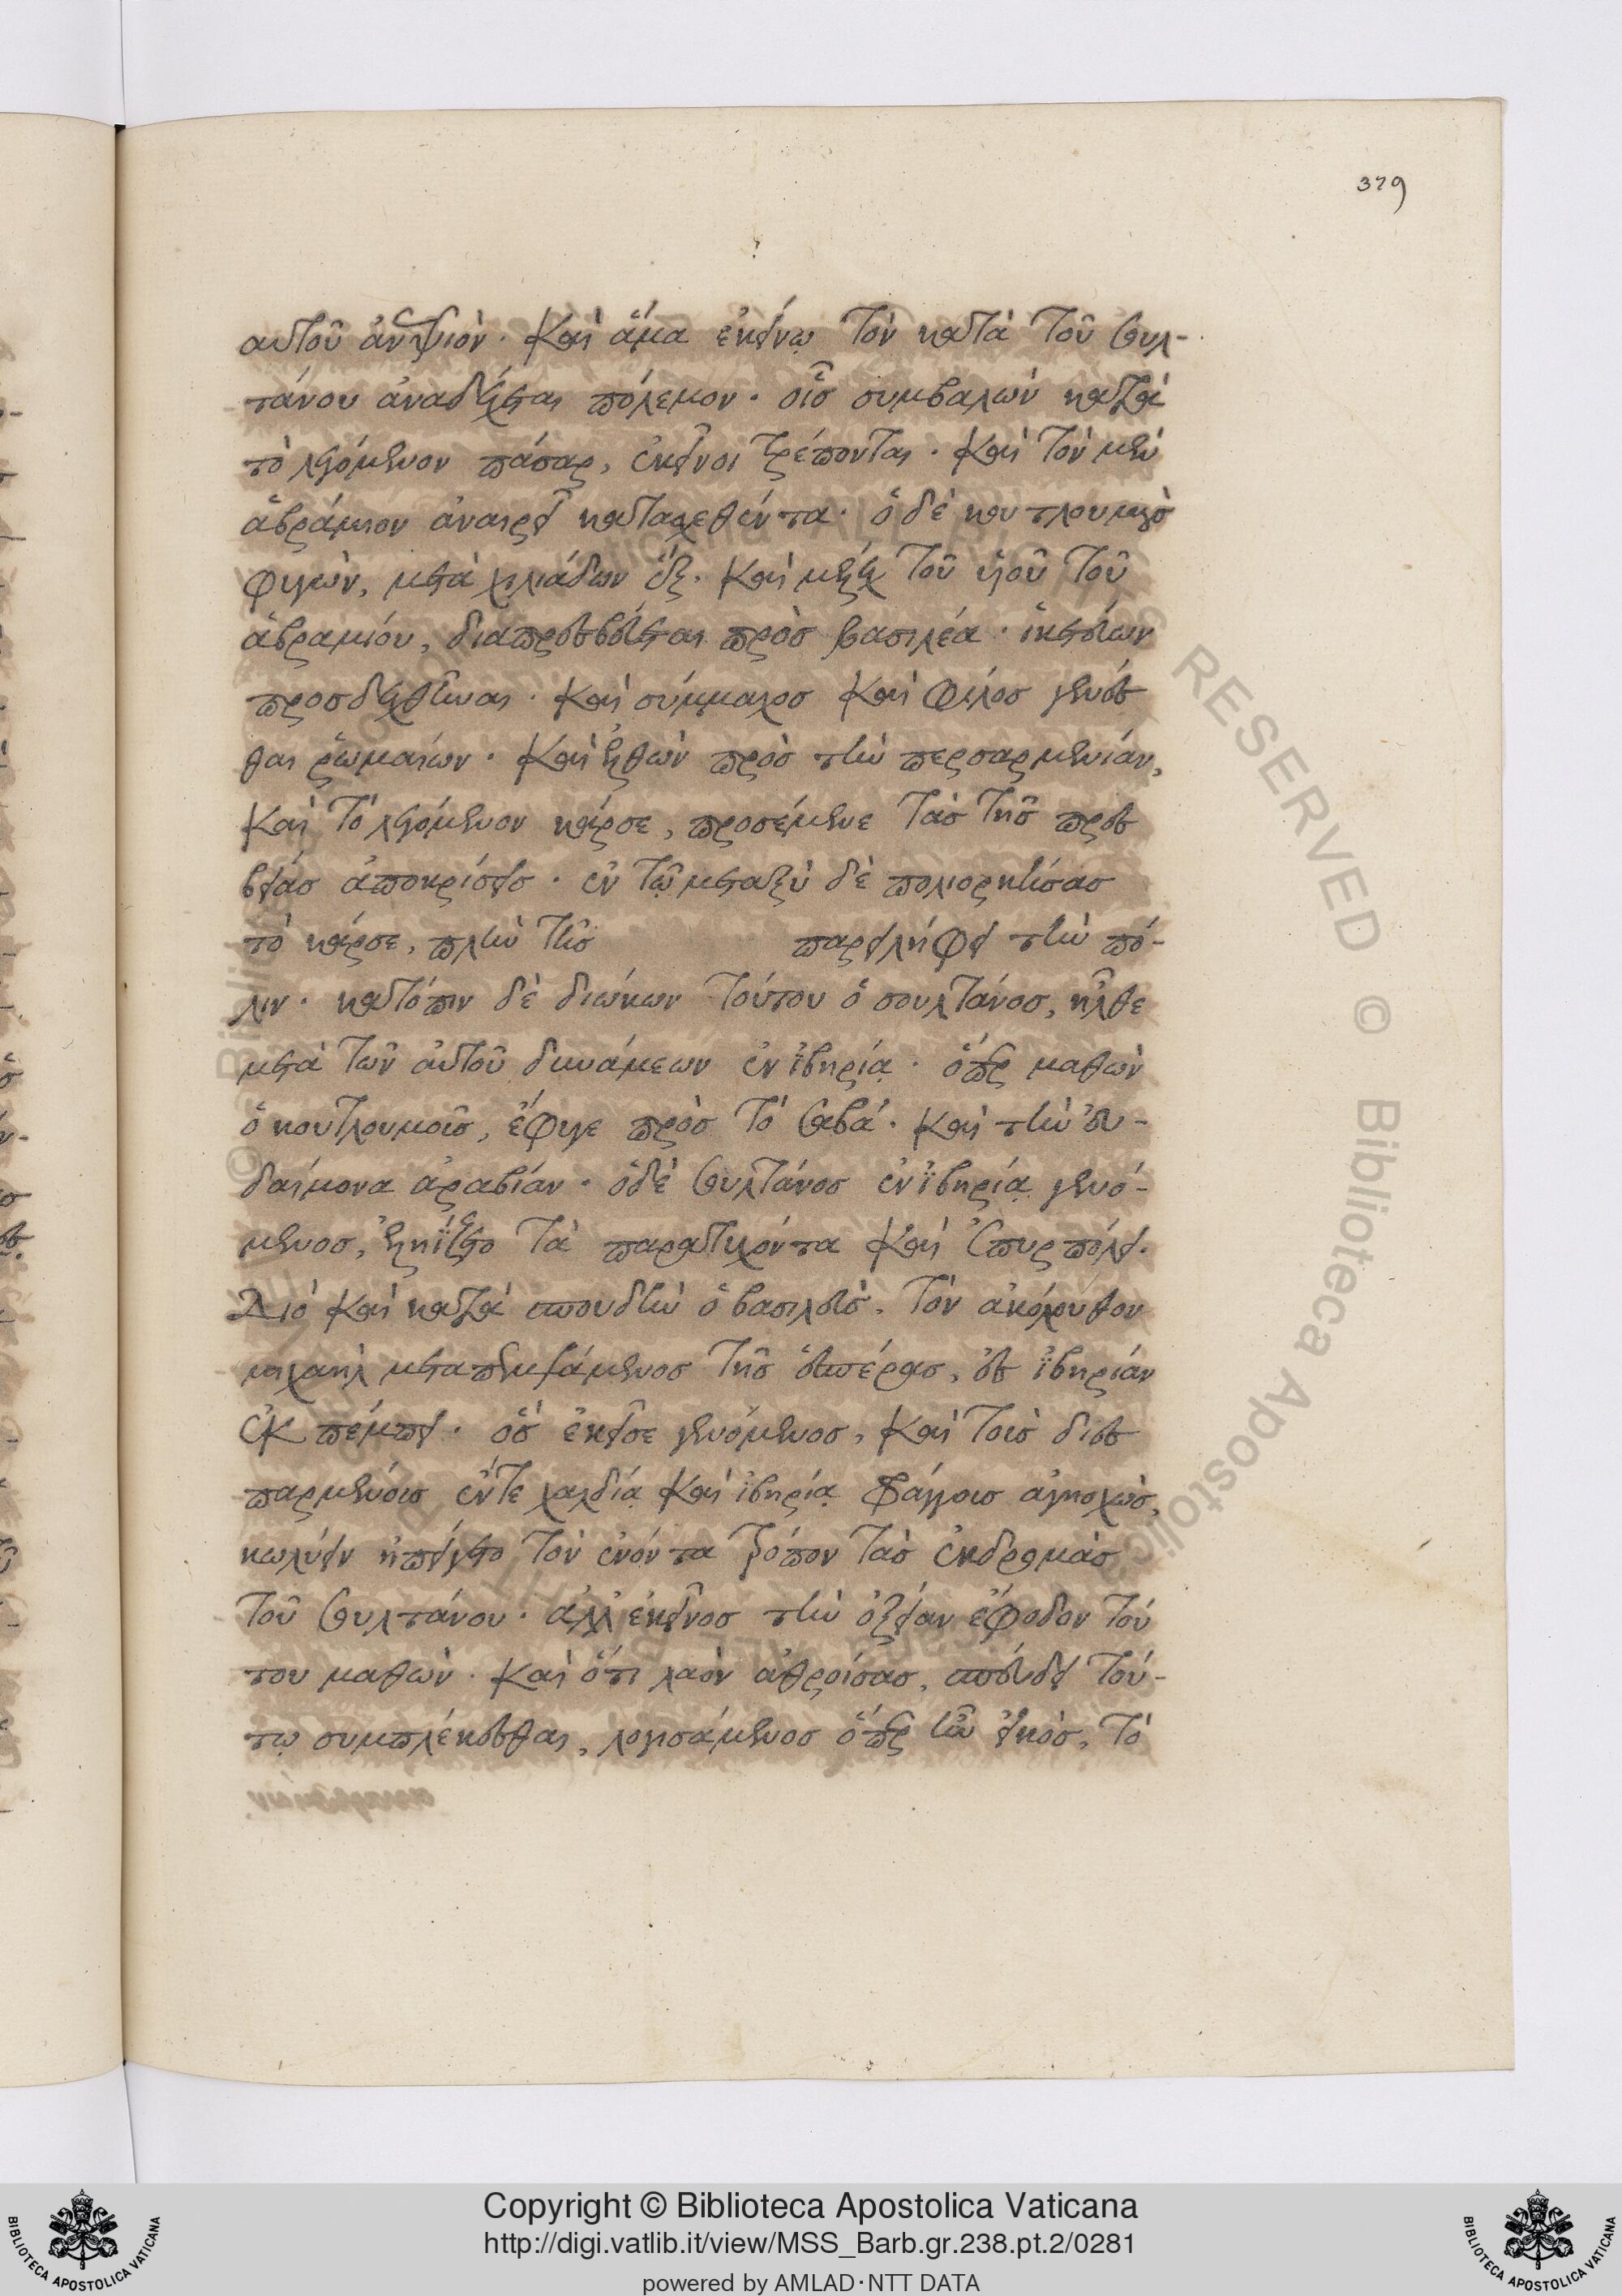 379
αυτοῦ ἀνεψιὸν. Καὶ ἅμα ἐκείνῳ τὸν κατὰ τοῦ Σουλ-
τάνου ἀναδέχεται πόλεμον. οἷς συμβαλὼν κατὰ
τὸ λεγόμενον πάσαρ, ἐκεῖνοι τρέπονται. Καὶ τὸν μὲν
ἀβράμιον ἀναιρεῖ κατασχεθέντα. ὁ δὲ κουτλουμοὺς
φυγὼν, μετὰ χιλιάδων ἓξ. Καὶ μελὲχ τοῦ υἱοῦ τοῦ
ἀβραμίου, διαπρεσβεύεται πρὸς βασιλέα. ἱκετεύων
προσδεχθῆναι. Καὶ σύμμαχος Καὶ φίλος γενέσ
θαι ῥωμαίων. Καὶ ἐλθὼν πρὸς τὴν περσαρμενίαν,
Καὶ τὸ λεγόμενον κάρσε, προσέμενε τὰς τῆς πρεσ
βείας ἀποκρίσεις. ἐν τῷ μεταξὺ δὲ πολιορκήσας
τὸ κάρσε, πλὴν τῆς παρειλήφει τὴν πό-
λιν. κατόπιν δὲ διώκων τούτου ὁ σουλτάνος, ἦλθε
μετὰ τῶν αὐτοῦ δυνάμεων ἐν ἰβηρίᾳ. ὅπερ μαθὼν
ὁ κουτλουμοῦς, ἔφυγε πρὸς τὸ Σαβά. Καὶ τὴν εὐ-
δαίμονα ἀραβίαν. ὁ δὲ Σουλτάνος ἐν ἰβηρίᾳ γενό-
μενος, ἐληΐζετο τὰ παρατυχόντα Καὶ ἐπυρπόλει.
Διὸ Καὶ κατὰ σπουδὴν ὁ βασιλεὺς, τὸν ἀκόλουθον
μιχαὴλ μεταπεμψάμενος τῆς ἑσπέρας, ἐς ἰβηρίαν
ἐκ πέμπει. ὃς ἐκεῖσε γενόμενος, Καὶ τοὺς διεσ
παρμένους ἔν τε χαλδίᾳ Καὶ ἰβηρίᾳ φράγγους ἀγηοχὼς,
κωλύειν ἠπείγετο τὸν ἐνόντα τρόπον τὰς ἐκδρομὰς
τοῦ Σουλτάνου. ἀλλ' ἐκεῖνος τὴν ὀξεῖαν ἔφοδον τού
του μαθὼν. Καὶ ὅτι λαὸν ἀθροίσας, σπεύδει τού-
τῳ συμπλέκεσθαι, λογισάμενος ὅπερ ἦν εἰκὸς, τὸ
Copyright © Biblioteca Apostolica Vaticana
http://digi.vatlib.it/view/MSS_Barb.gr.238.pt.2/0281
powered by AMLAD·NTT DATA